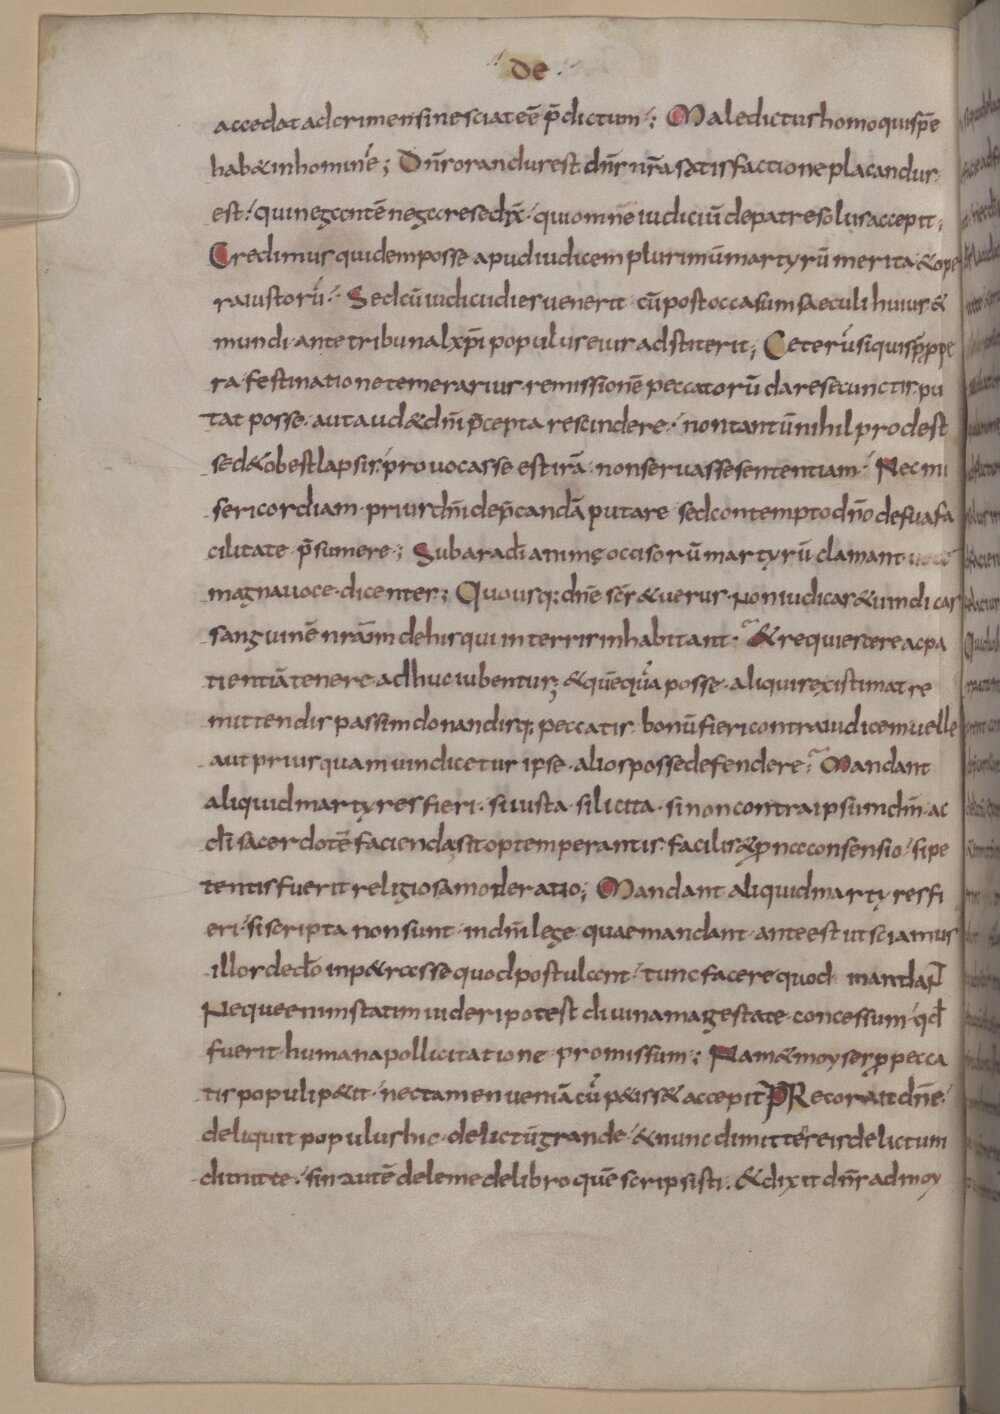 de
accedat ad crimen si nesciat eē p̄dictum; Maledictus homo qui spē
hab& in homine; Dn̄s orandus est dn̄s nr̄a satisfactione placandus
est qui negantē negare se dix̄ qui omne iudiciū de patre solus accepit;
Credimus quidem posse apud iudicem plurimū martyrū merita & ope
ra iustorū. Sed cū iudicii dies uenerit cū post occasum saeculi huius &
mundi ante tribunal xp̄i populus eius adstiterit; Ceterū si quis p̄prope
ra festinatione temerarius remissionē peccatorū dare se cunctis pu
tat posse aut aud& dn̄i p̄cepta rescindere non tantū nihil prodest
sed & obest lapsis prouocasse est irā non seruasse sententiam Nec mi
sericordiam prius dn̄i dep̄candā putare sed contempto dn̄o de sua fa
cilitate p̄sumere; Sub ara dī animę occisorū martyrū clamant
magna uoce dicentes; Quousq; dn̄e scs̄ & uerus non iudicas & uindicas
sanguinē nrām de his qui in terris inhabitant & requiescere ac pa
tientiā tenere adhuc iubentur; & quēquā posse aliquis existimat re
mittendis passim donandisq; peccatis bonū fieri contra iudicem uelle
aut priusquam uindicetur ipse alios posse defendere. Mandant
aliquid martyres fieri si iusta si licita si non contra ipsum dn̄m ac
dī sacerdotē facienda sit optemperantis facilis & prona consensio si pe
tentis fuerit religiosa moderatio; Mandant aliquid martyres fi
eri si scripta non sunt in dn̄i lege quae mandant ante est ut sciamus
illos de dō inp&rasse quod postulant tunc facere quod mandaN̄T
Neque enim statim uideri potest diuina magestate concessum qd̄
fuerit humana pollicitatione promissum; Nam & moyses p̄ pecca
tis populi p&iit nec tamen ueniā cū p&iss& accepit PRecor ait dn̄e
deliquit populus hic delictū grande & nunc dimitte eis delictum
dimitte sin autē dele me de libro quē scripsisti. & dixit dn̄s ad moy